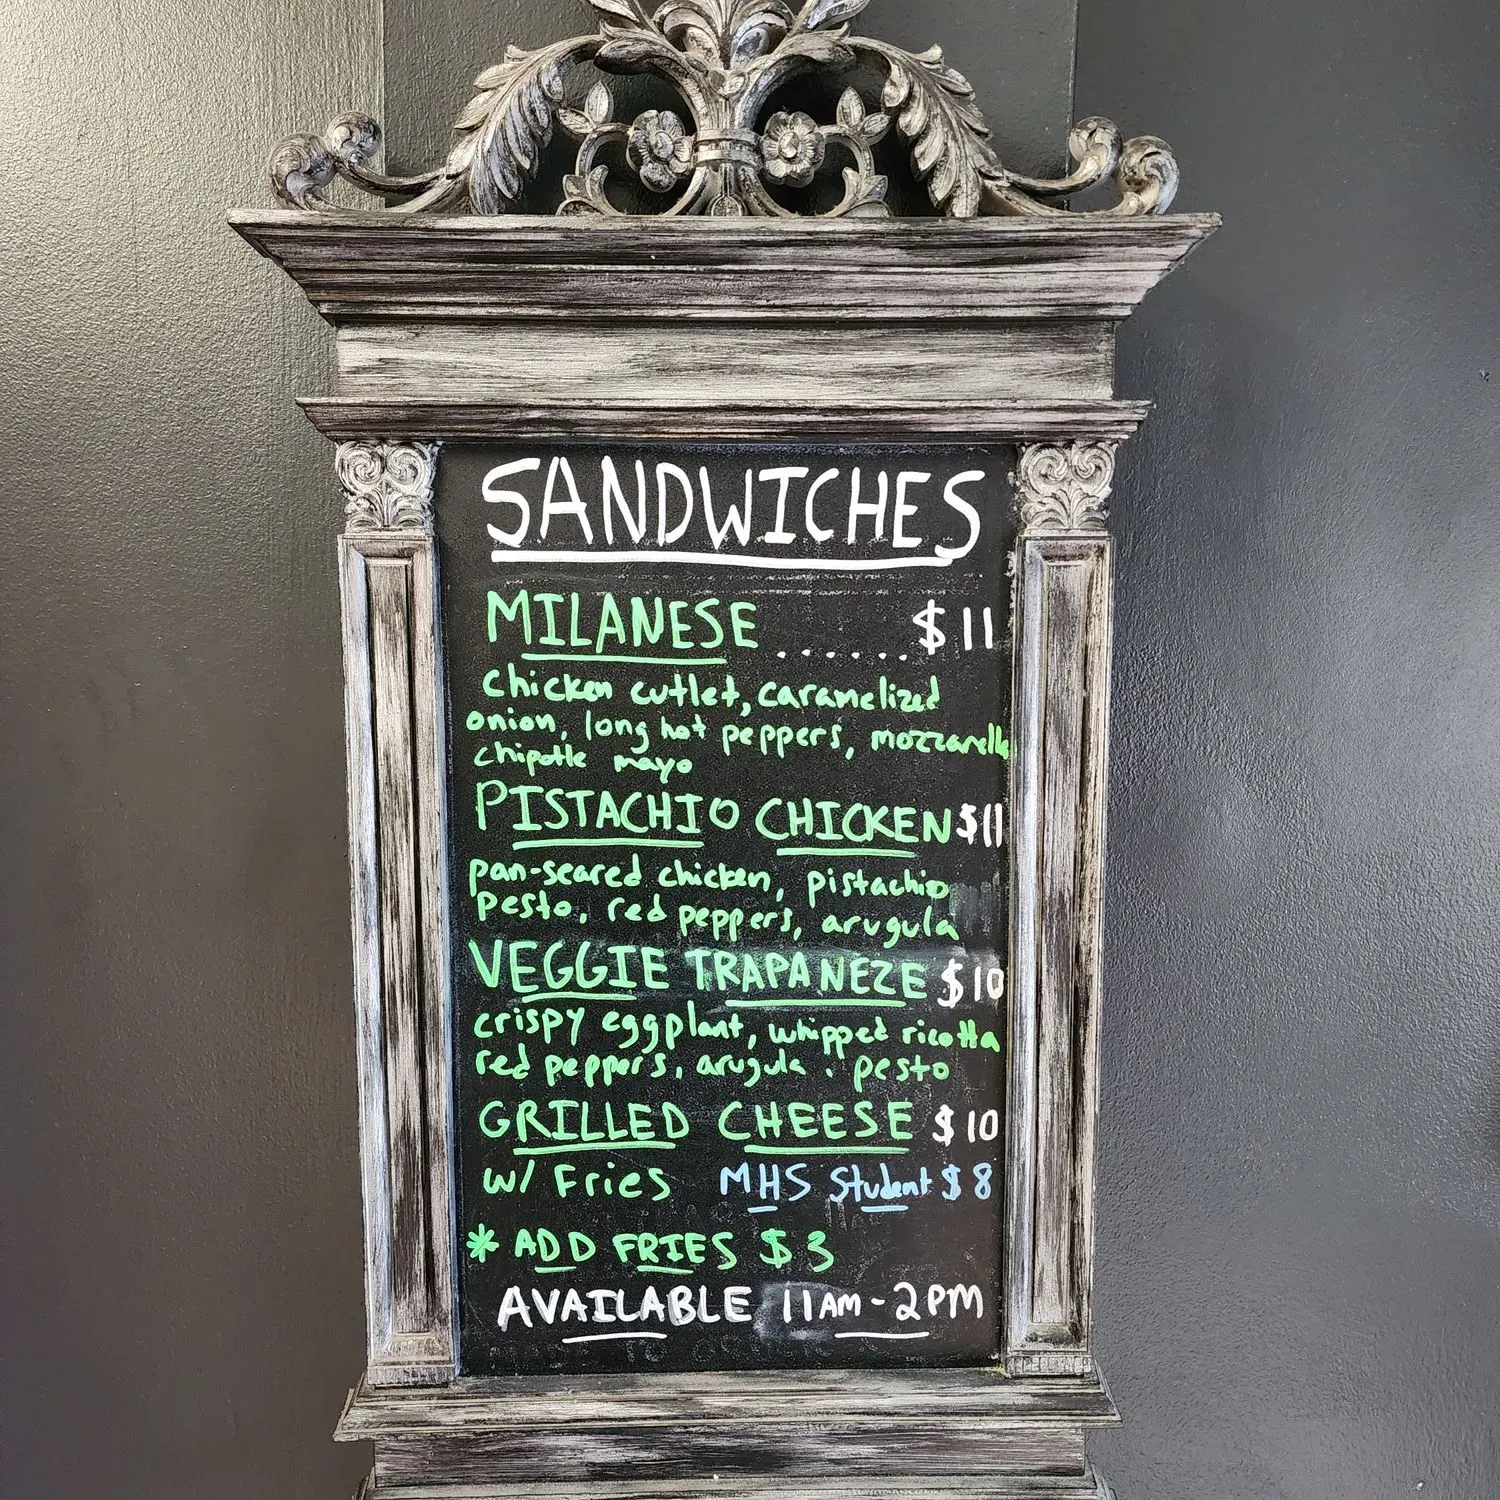 SANDWICHES
MILANESE ....... $11
chicken cutlet, caramelized
onion, long hot peppers, mozzarella
chipotle mayo
PISTACHIO CHICKEN $11
pan-seared chicken, pistachio
pesto, red peppers, arugula
VEGGIE TRAPANEZE $10
crispy eggplant, whipped ricotta
red peppers, arugula, pesto
GRILLED CHEESE $10
w/ Fries MHS Student $8
* ADD FRIES $3
AVAILABLE 11AM-2PM